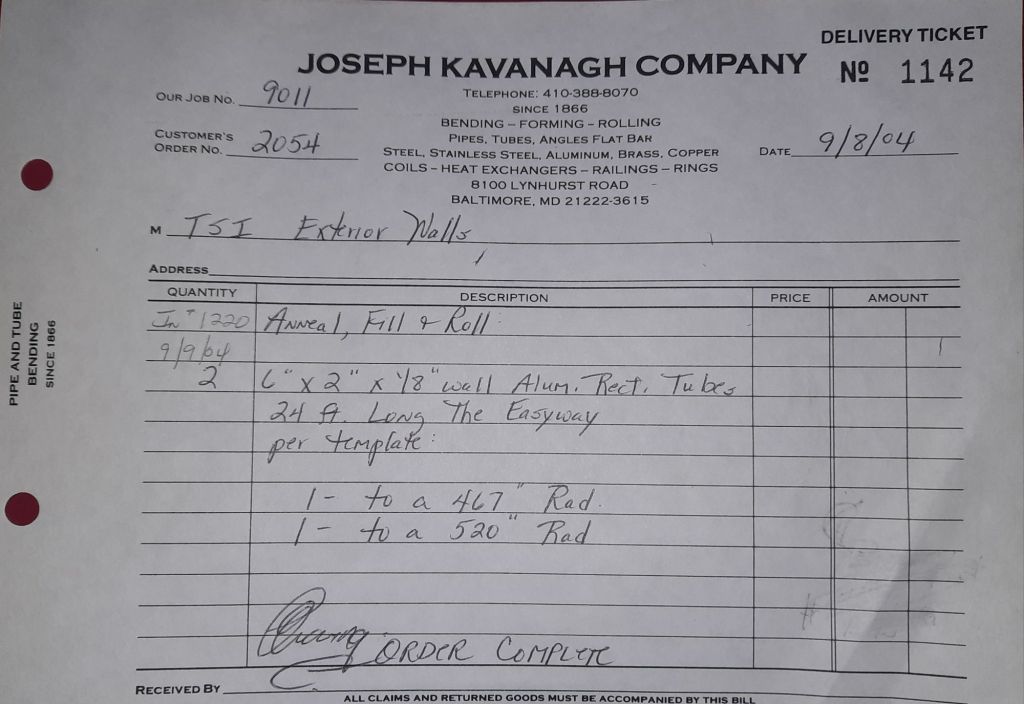 DELIVERY TICKET
JOSEPH KAVANAGH COMPANY
Nº 1142
OUR JOB NO. 9011
TELEPHONE: 410-388-8070
SINCE 1866
BENDING – FORMING – ROLLING
CUSTOMER'S
ORDER NO. 2054
PIPES, TUBES, ANGLES FLAT BAR
STEEL, STAINLESS STEEL, ALUMINUM, BRASS, COPPER
DATE 9/8/04
COILS – HEAT EXCHANGERS – RAILINGS – RINGS
8100 LYNHURST ROAD
BALTIMORE, MD 21222-3615
M TSI Exterior Walls
ADDRESS
QUANTITY DESCRIPTION PRICE AMOUNT
In # 1220 Anneal, Fill & Roll:
9/9/04
2 6" x 2" x 1/8" wall Alum. Rect. Tubes
24 ft Long The Easyway
per template:
1 - to a 467" Rad.
1 - to a 520" Rad
ORDER COMPLETE
RECEIVED BY
ALL CLAIMS AND RETURNED GOODS MUST BE ACCOMPANIED BY THIS BILL
PIPE AND TUBE
BENDING
SINCE 1866